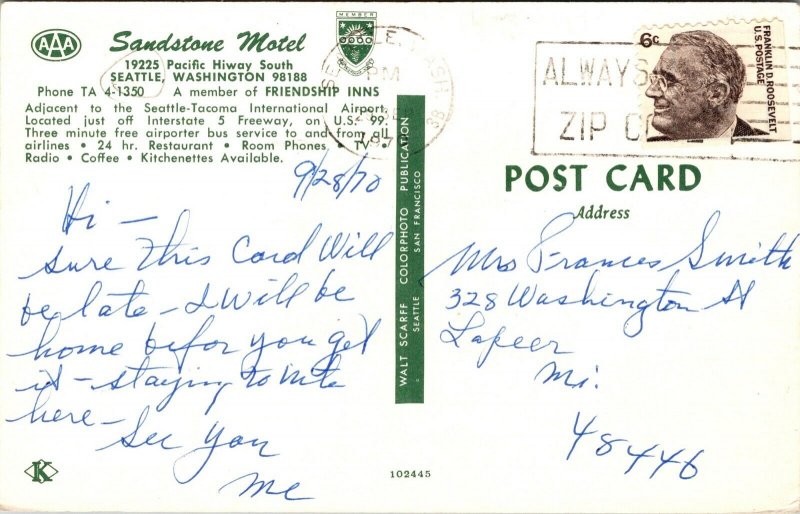 AAA
Sandstone Motel
19225 Pacific Hiway South
SEATTLE, WASHINGTON 98188
Phone TA 4-1350 A member of FRIENDSHIP INNS
Adjacent to the Seattle-Tacoma International Airport.
Located just off Interstate 5 Freeway, on U.S. 99.
Three minute free airporter bus service to and from all
airlines • 24 hr. Restaurant • Room Phones • TV •
Radio • Coffee • Kitchenettes Available.
MEMBER
9/28/70
Hi -
sure this Card Will
be late - I Will be
home befor you get
it - staying to nite
here -
See You
Me
K
WALT SCARFF COLORPHOTO PUBLICATION
SEATTLE SAN FRANCISCO
102445
PM
ALWAYS
ZIP
6c
FRANKLIN D. ROOSEVELT
U.S. POSTAGE
POST CARD
Address
Mrs Frances Smith
328 Washington St
Lapeer
Mi.
48446